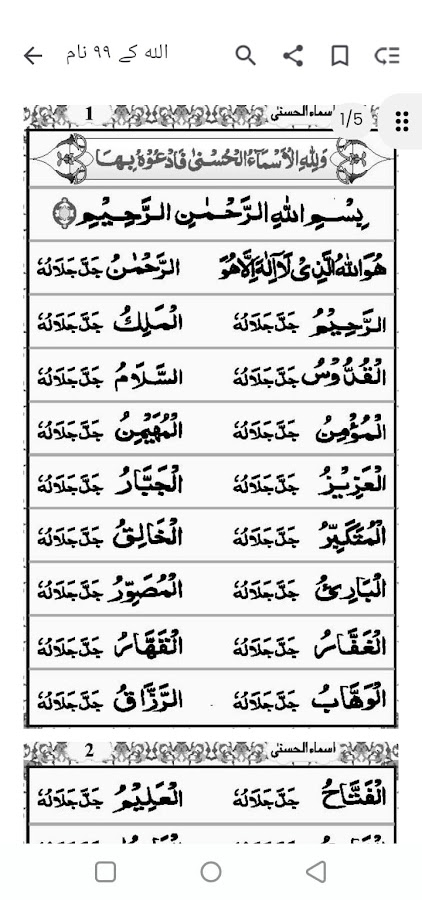 الله کے ۹۹ نام
اسماء الحسنٰی 1
1/5
وَلِلّٰهِ الْاَسْمَآءُ الْحُسْنٰی فَادْعُوْهُ بِهَا
بِسْمِ اللّٰهِ الرَّحْمٰنِ الرَّحِيْمِ
هُوَ اللّٰهُ الَّذِیْ لَآ اِلٰهَ اِلَّا هُوَ الرَّحْمٰنُ جَلَّ جَلَالُهٗ
الرَّحِيْمُ جَلَّ جَلَالُهٗ الْمَلِكُ جَلَّ جَلَالُهٗ
الْقُدُّوْسُ جَلَّ جَلَالُهٗ السَّلَامُ جَلَّ جَلَالُهٗ
الْمُؤْمِنُ جَلَّ جَلَالُهٗ الْمُهَيْمِنُ جَلَّ جَلَالُهٗ
الْعَزِيْزُ جَلَّ جَلَالُهٗ الْجَبَّارُ جَلَّ جَلَالُهٗ
الْمُتَكَبِّرُ جَلَّ جَلَالُهٗ الْخَالِقُ جَلَّ جَلَالُهٗ
الْبَارِئُ جَلَّ جَلَالُهٗ الْمُصَوِّرُ جَلَّ جَلَالُهٗ
الْغَفَّارُ جَلَّ جَلَالُهٗ الْقَهَّارُ جَلَّ جَلَالُهٗ
الْوَهَّابُ جَلَّ جَلَالُهٗ الرَّزَّاقُ جَلَّ جَلَالُهٗ
اسماء الحسنٰی 2
الْفَتَّاحُ جَلَّ جَلَالُهٗ الْعَلِيْمُ جَلَّ جَلَالُهٗ